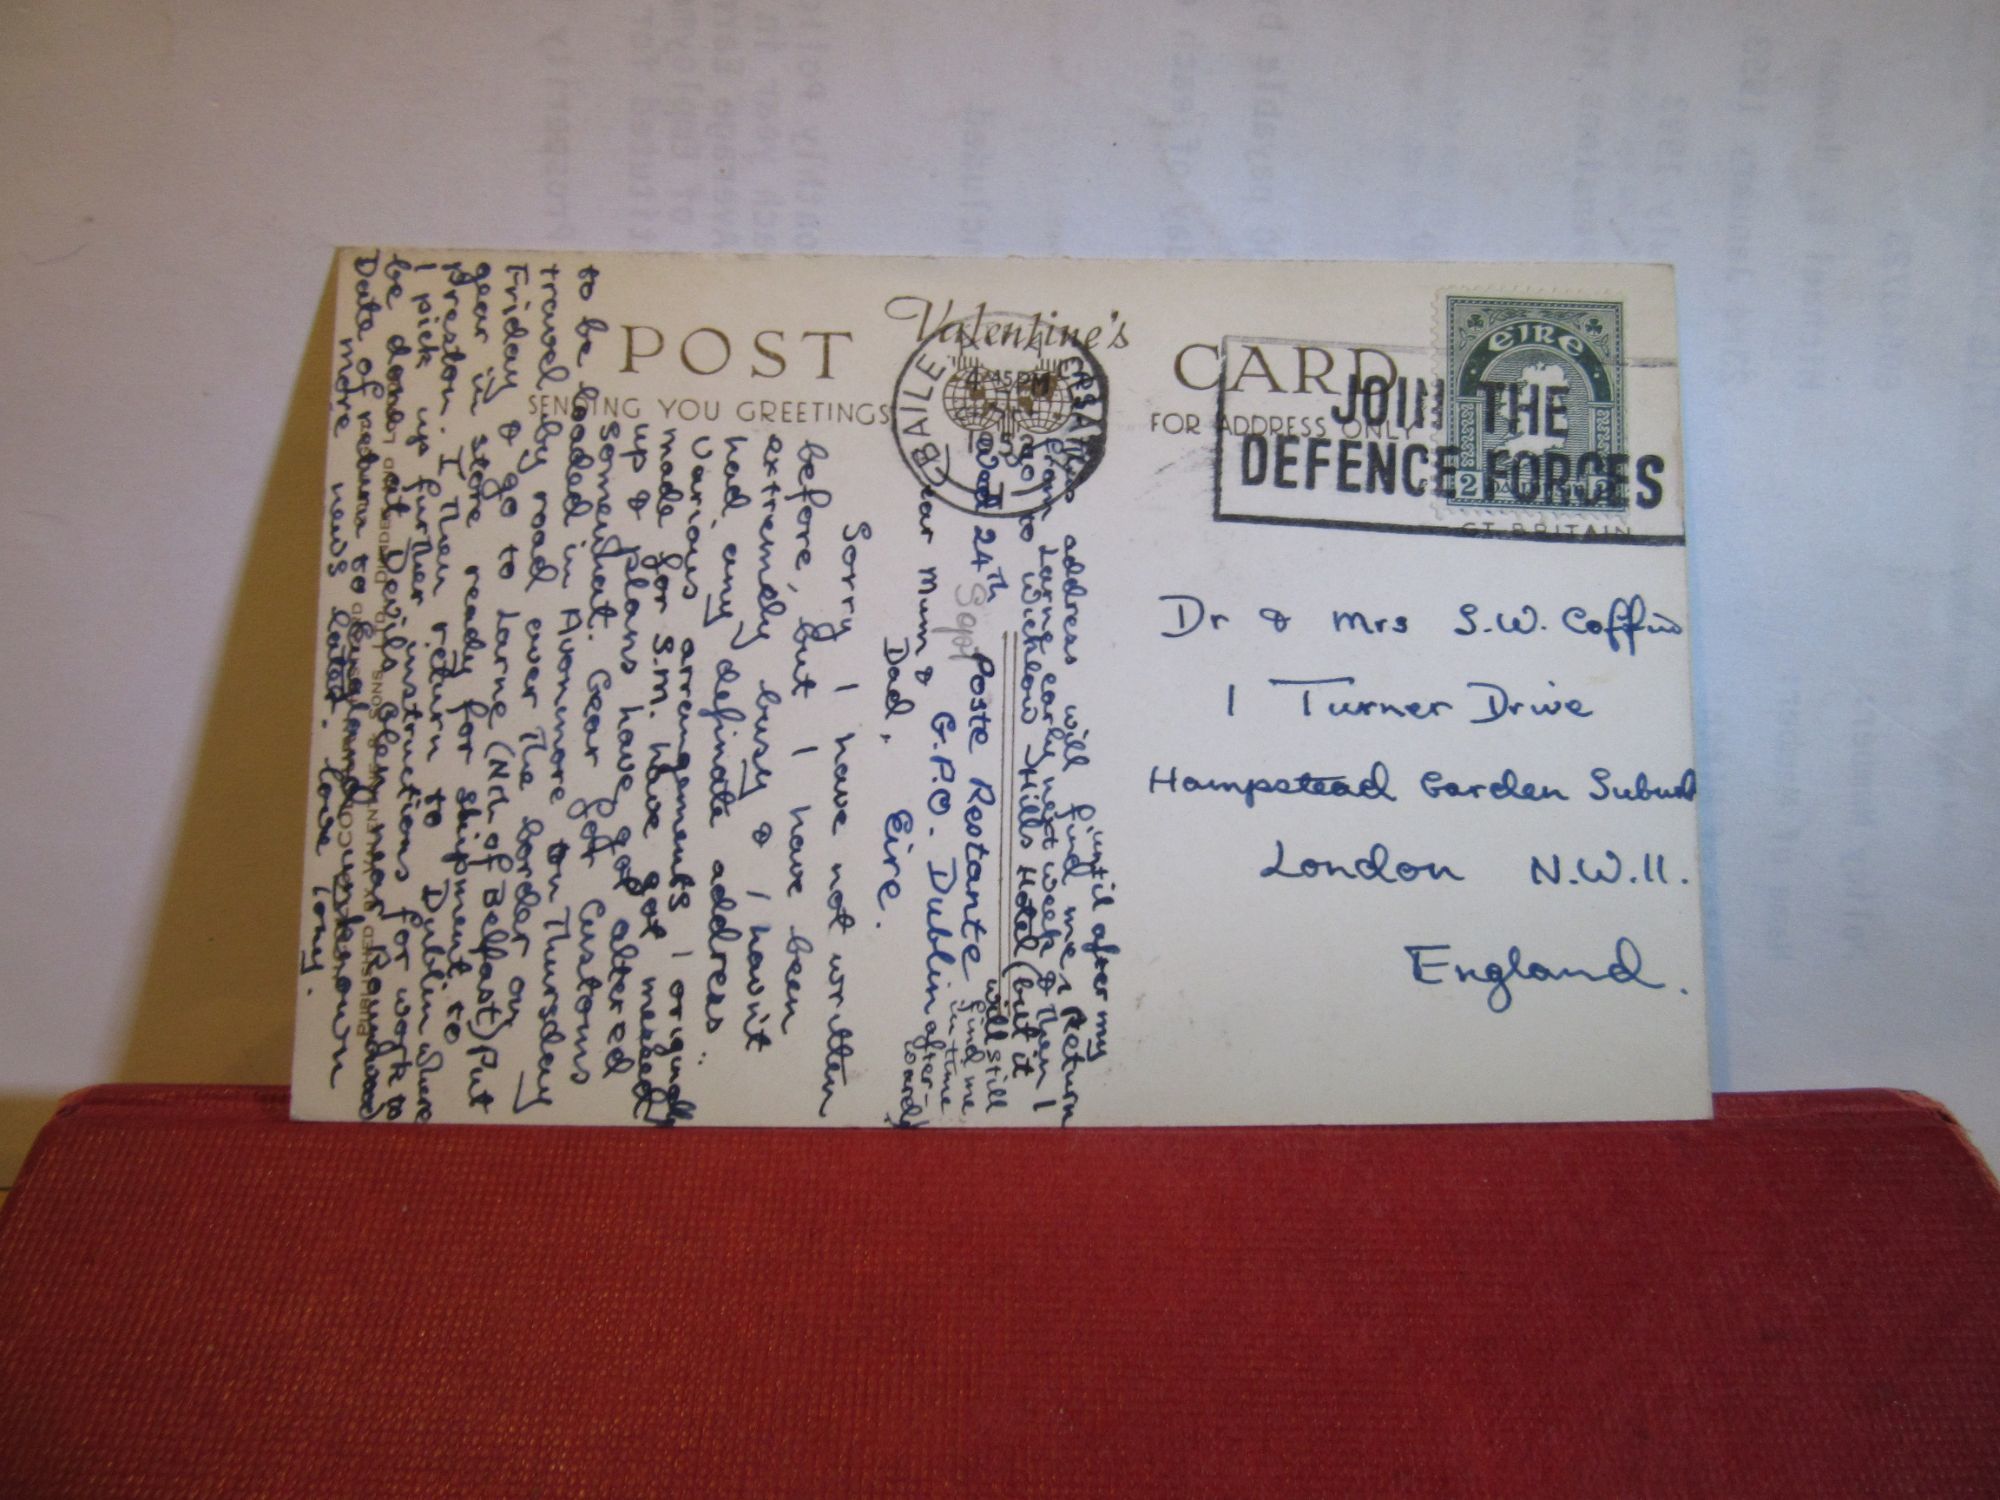 POST
Valentine's
CARD
SENDING YOU GREETINGS
FOR ADDRESS ONLY
BAILE
45 PM
éire
2
JOIN THE
DEFENCE FORCES
GT. BRITAIN
Dr & Mrs S.W. Coffin
1 Turner Drive
Hampstead Garden Suburb
London N.W.11.
England.
until after my
This address will find me, Return
from Larne early next week & then I
go to Wicklow Hills Hotel (but it
will still
find me
in time
after-
wards)
Wed 24th Sept Poste Restante
G.P.O. Dublin
Eire.
Dear Mum &
Dad,
Sorry I have not written
before, but I have been
extremely busy & I hav'nt
had any definate address.
Various arrangements I originally
made for S.M. have got messed
up & plans have got altered
somewhat. Gear for Customs
to be loaded in Avonmore on Thursday
travel by road over the border on
Friday & go to Larne (Nth of Belfast) Put
gear in store ready for shipment to
Preston. I then return to Dublin where
I pick up further instructions for work to
be done at Devils Glen near Roundwood
Date of return to England unknown
more news later. love Tony.